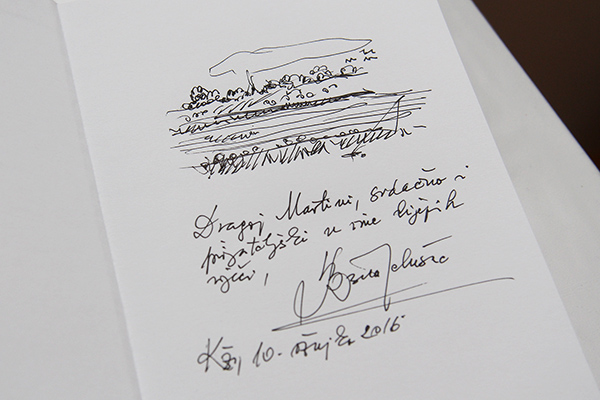 Dragoj Martini, srdačno i
prijateljski u ime lijepih
riječi,
Božica Jelušić
Kž, 10. ožujka 2016